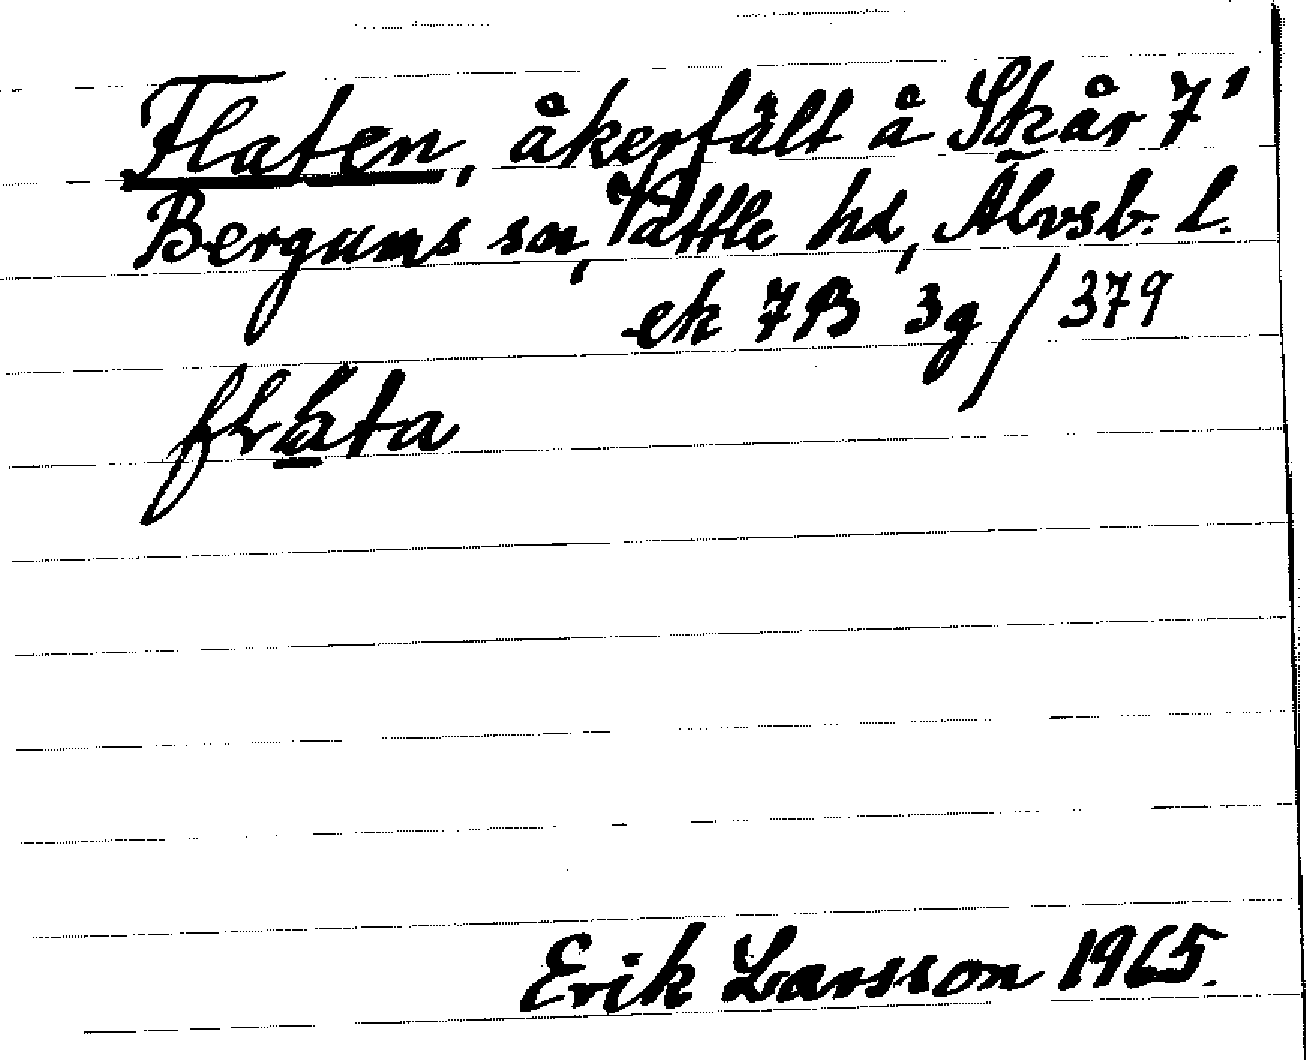 Flaten, åkerfält å Skår 7¹
Bergums sn, Vättle hd, Älvsb. l.
ek 7B 3g / 379
fLata
Erik Larsson 1965.